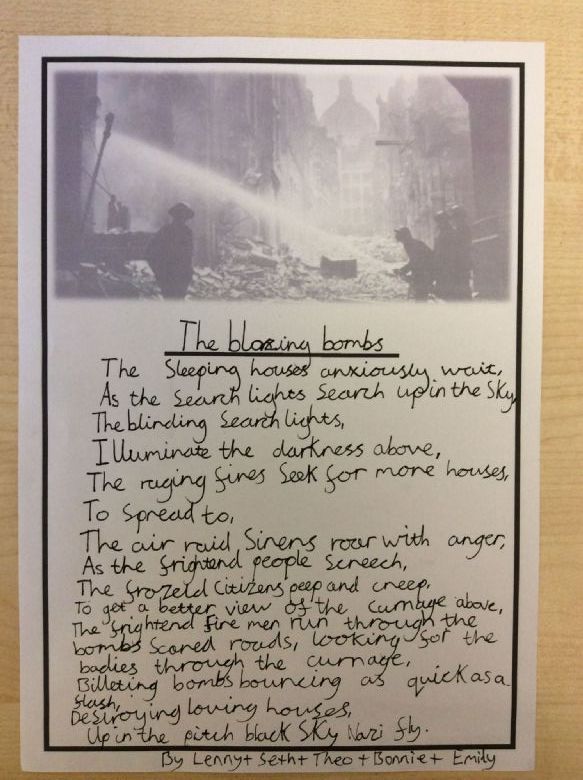 The blazing bombs
The Sleeping houses anxiously wait,
As the Search lights Search up in the Sky,
The blinding Search lights,
Illuminate the darkness above,
The raging fires Seek for more houses,
To Spread to,
The air raid Sirens roar with anger,
As the frightend people Screech,
The frozeld Citizens peep and creep,
To get a better view of the curnage above,
The frightend fire men run through the
bombs Scared roads, looking for the
badies through the curnage,
Billeting bombs bouncing as quick as a
flash,
Destroying loving houses,
Up in the pitch black Sky Nazi fly.
By Lenny + Seth + Theo + Bonnie + Emily